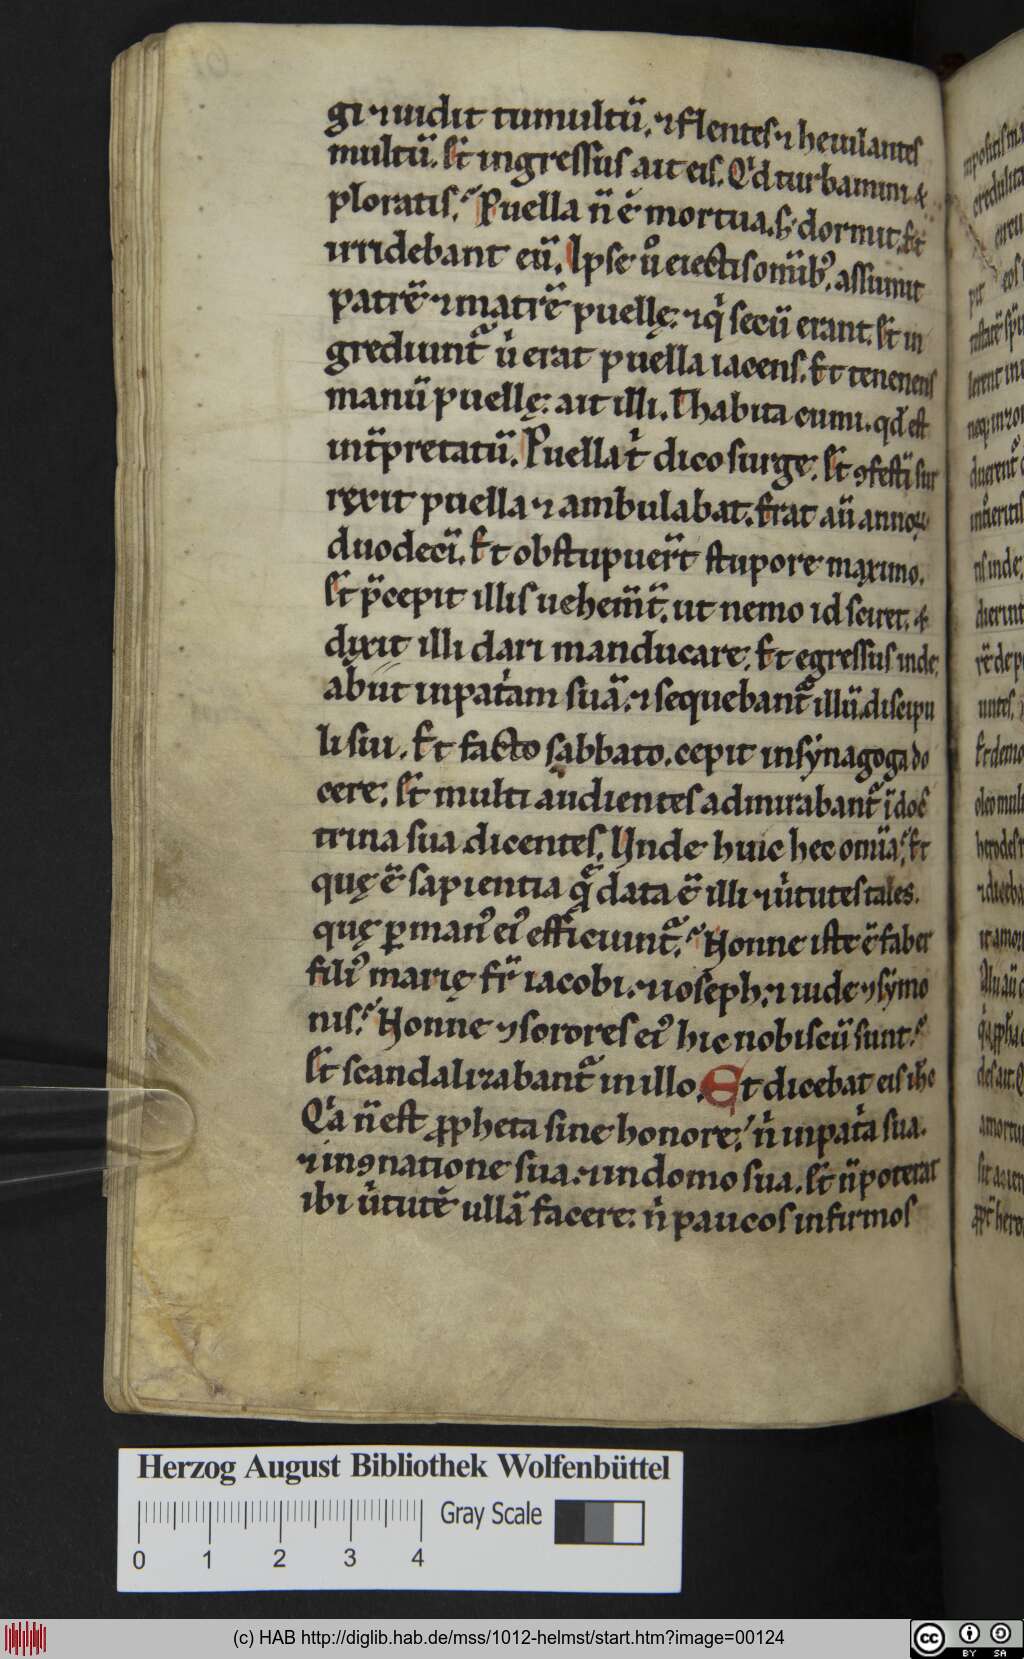 gi ⁊ uidit tumultū. ⁊ flentes ⁊ heiulantes
multū. Et ingressus ait eis. Qͥd turbamini &
ploratis? Puella n̄ ē mortua. sꝫ dormit. Et
irridebant eū. Ipse ů eiectis omībꝰ. assumit
patrē ⁊ matrē puellę. ⁊ qͥ secū erant. Et in
grediuntᷓ ů erat puella iacens. Et tenenens
manū puellę: ait illi. Thabita cumi. qđ est
int̄pretatū. Puella tͥ dico surge. Et ꝯfestī sur
rexit puella ⁊ ambulabat. Erat aū annoꝝ
duodecī. Et obstupuer̄t stupore maximo.
Et p̄cepit illis uehem̄t̄. ut nemo id sciret. &
dixit illi dari manducare. Et egressus inde.
abiit in patͥam suā. ⁊ sequebantᷓ illū discipu
li sui. Et facto sabbato. cepit in synagoga do
cere. Et multi audientes admirabantᷓ ī doc
trina sua dicentes. Unde huic hec omīa? Et
quę ē sapientia q̄ data ē illi ⁊ uͥtutes tales.
quę ꝑ manꝰ eiꝰ efficiuntᷓ? Nonne iste ē faber
filiꝰ marię fr̄ iacobi. ⁊ ioseph. ⁊ iude ⁊ symo
nis? Nonne ⁊ sorores eiꝰ hic nobiscū sunt?
Et scandalizabantᷓ in illo. Et dicebat eis ihc
Qͥa n̄ est ꝓpheta sine honore. nͥ in patͥa sua.
⁊ in ꝯnatione sua. ⁊ in domo sua. Et n̄ poterat
ibi uͥtutē ullā facere. nͥ paucos infirmos
Herzog August Bibliothek Wolfenbüttel
Gray Scale
0 1 2 3 4
(c) HAB http://diglib.hab.de/mss/1012-helmst/start.htm?image=00124
cc BY SA